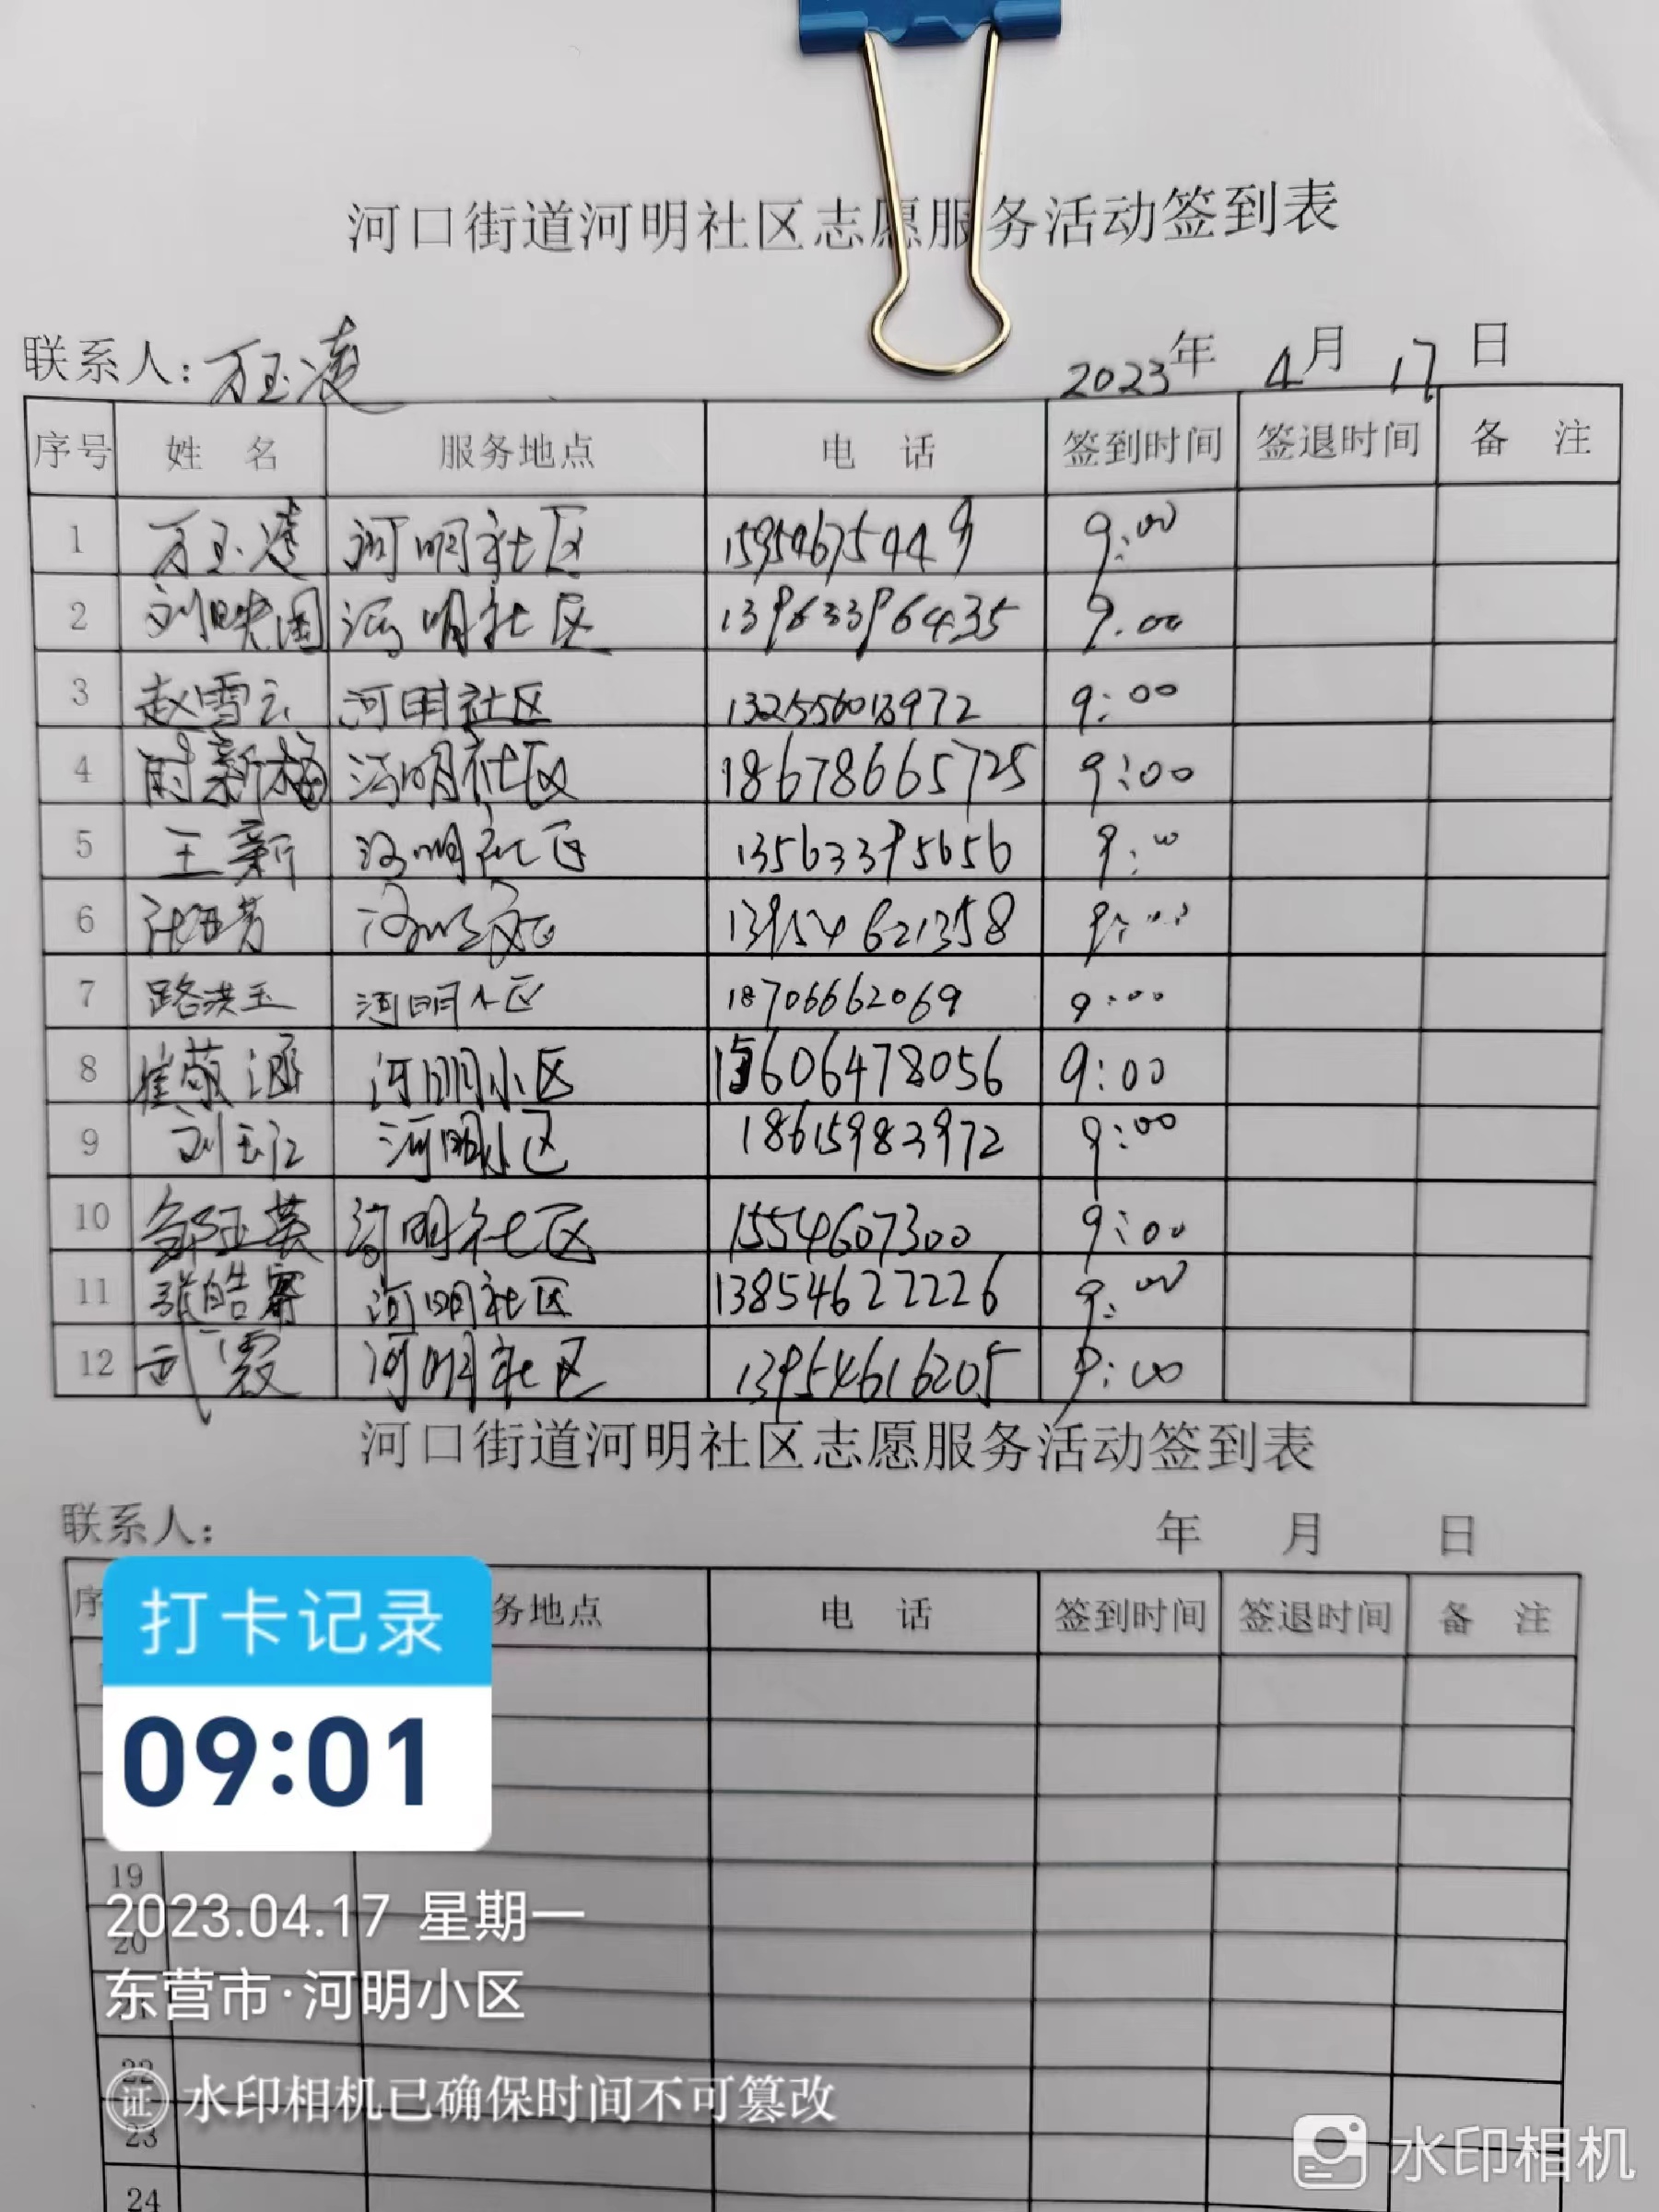 河口街道河明社区志愿服务活动签到表
联系人: 万玉凌 2023年 4月 17日
序号 姓 名 服务地点 电 话 签到时间 签退时间 备 注
1 万玉凌 河明社区 15954675449 9:00
2 刘映国 河明社区 13963396435 9.00
3 赵雪云 河明社区 9:00
4 时新梅 河明社区 18678665725 9:00
5 王新 河明社区 13563395656 9:00
6 13954621358 9:00
7 路洪玉 河明小区 18706662069 9:00
8 崔敬涵 河明小区 15606478056 9:00
9 刘玉江 河明小区 18615983972 9:00
10 邹玉英 河明社区 1554607300 9:00
11 张皓 河明社区 13854627226 9:00
12 武霞 河明社区 13954616205 9:00
河口街道河明社区志愿服务活动签到表
联系人: 年 月 日
序 务地点 电 话 签到时间 签退时间 备 注
打卡记录
09:01
19
2023.04.17 星期一
20
东营市·河明小区
22
证 水印相机已确保时间不可篡改
23
水印相机
24